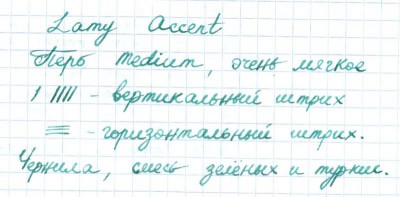 Lamy Accent
Перо medium, очень мягкое
1 //// - вертикальный штрих
≡ - горизонтальный штрих.
Чернила, смесь зелёных и туркис.